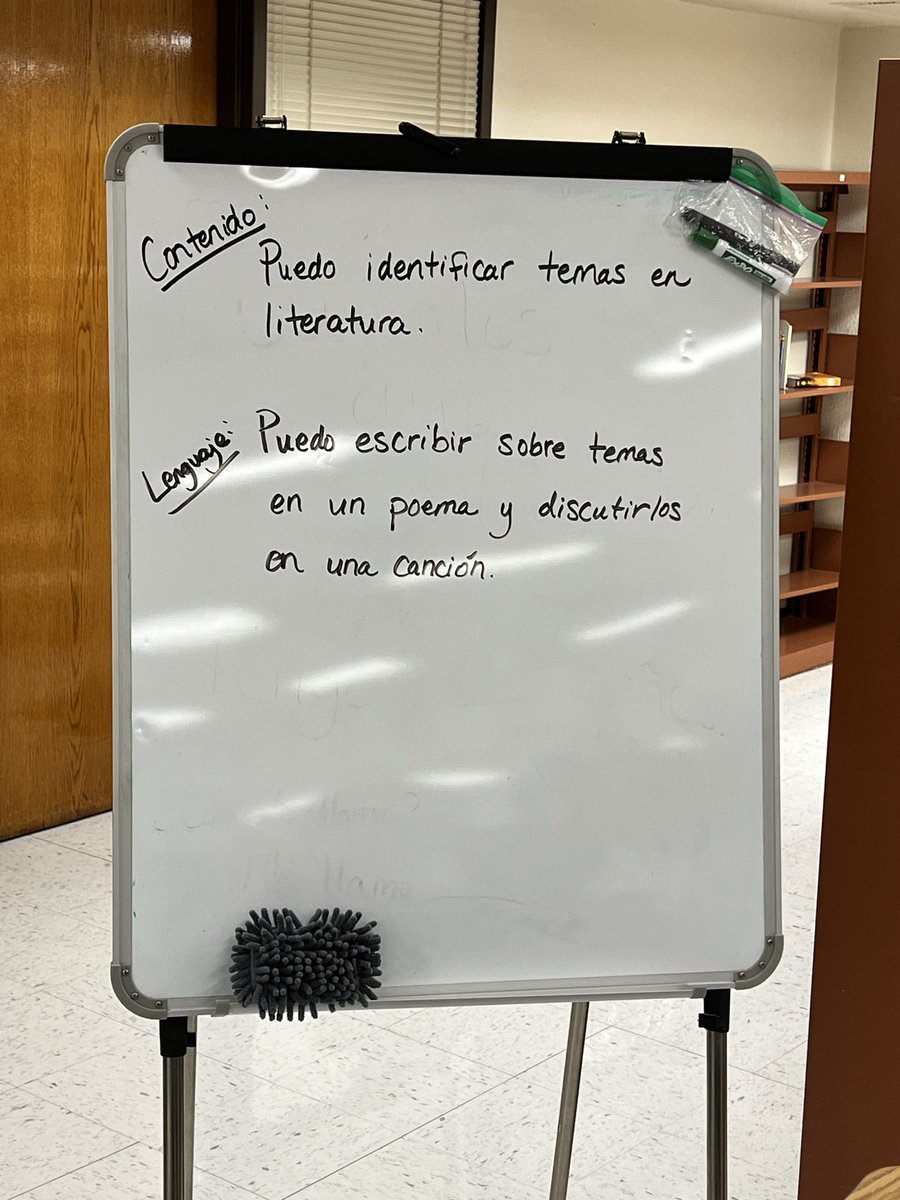 Contenido:
Puedo identificar temas en
literatura.
Lenguaje:
Puedo escribir sobre temas
en un poema y discutirlos
en una canción.
EXPO